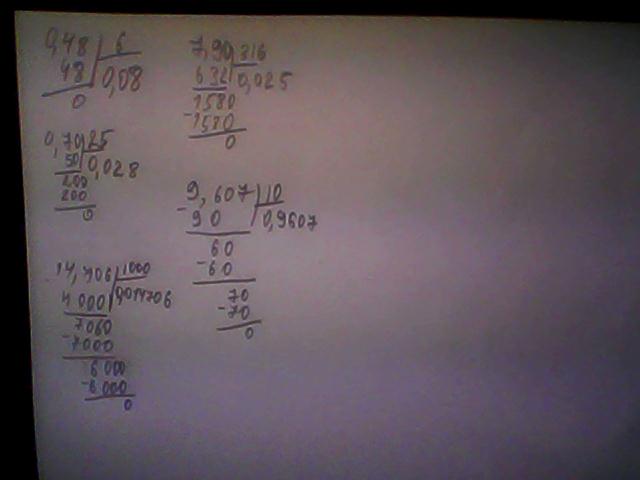 0,48 6
48 0,08
0
7,90 316
632 0,025
1580
-1580
0
0,70 25
50 0,028
200
200
0
9,607 10
-90 0,9607
60
-60
70
-70
0
14,706 1000
4000 0,014706
7060
-7000
6000
-6000
0